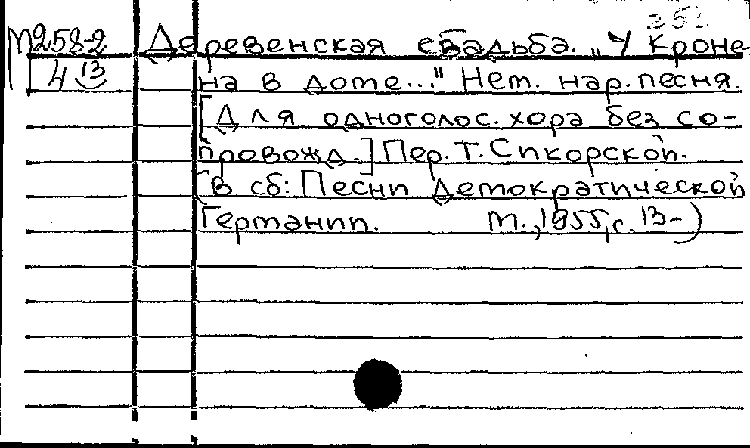 352
М258-2 Деревенская свадьба. „У Кроне-
4 13 на в доме..." Нем. нар. песня.
[Для одноголос. хора без со-
провожд.] Пер. Т. Сикорской.
(в сб: Песни демократической
Германии. М., 1955, с. 13-)